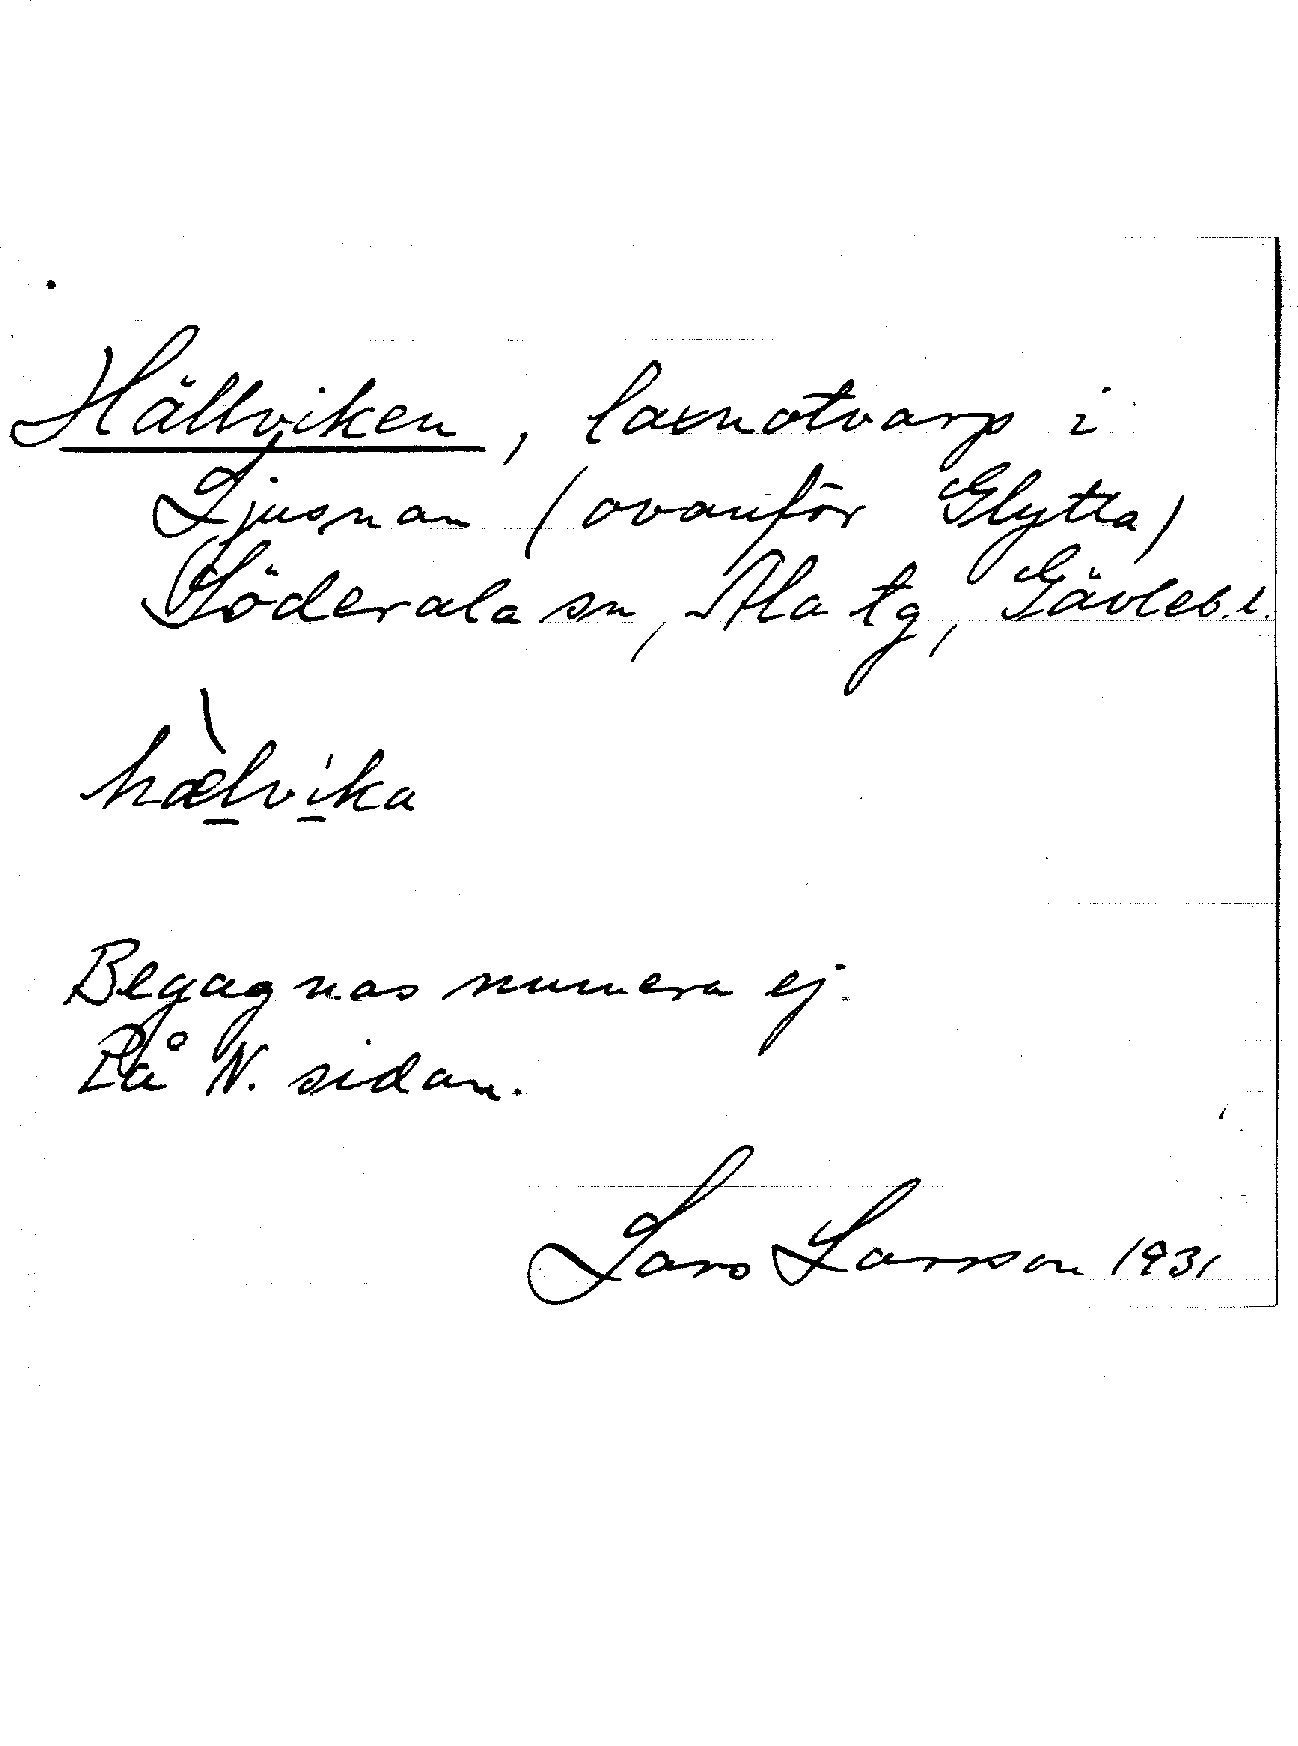 Hällviken, laxnotvarp i
Ljusnan (ovanför Glytta)
Söderala sn, Ala tg, Gävleb. l.
hæ̀lvika
Begagnas numera ej.
På N. sidan.
Lars Larsson 1931